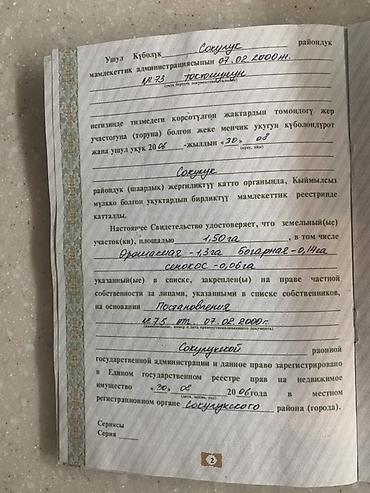 Ушул Күбөлүк Сокулук райондук
мамлекеттик администрациясынын 07.02.2000ж.
№73 токтомунун
негизинде тизмедеги көрсөтүлгөн жактардын томондогү жер
участогуна (торуна) болгон жеке менчик укугун күбөлөндүрөт
жана ушул укук 2006 -жылдын «30» 06
Сокулук
райондук (шаардык) жергиликтүү катто органында, Кыймылсыз
мүлкө болгон укуктардын бирдиктүү мамлекеттик реестринде
катталды.
Настоящее Свидетельство удостоверяет, что земельный(ые)
участок(ки), площадью 1,50 га , в том числе
Орошаемая - 1,3 га Богарная - 0,14 га
сенокос - 0,06 га
указанный(ые) в списке, закреплен(ы) на праве частной
собственности за лицами, указанными в списке собственников,
на основании Постановления
№73 от 07.02.2000г.
Сокулукской районной
государственной администрации и данное право зарегистрировано
в Едином государственном реестре прав на недвижимое
имущество «30» 06 2006 года в местном
регистрационном органе Сокулукского района (города).
Сериясы
Серия
2